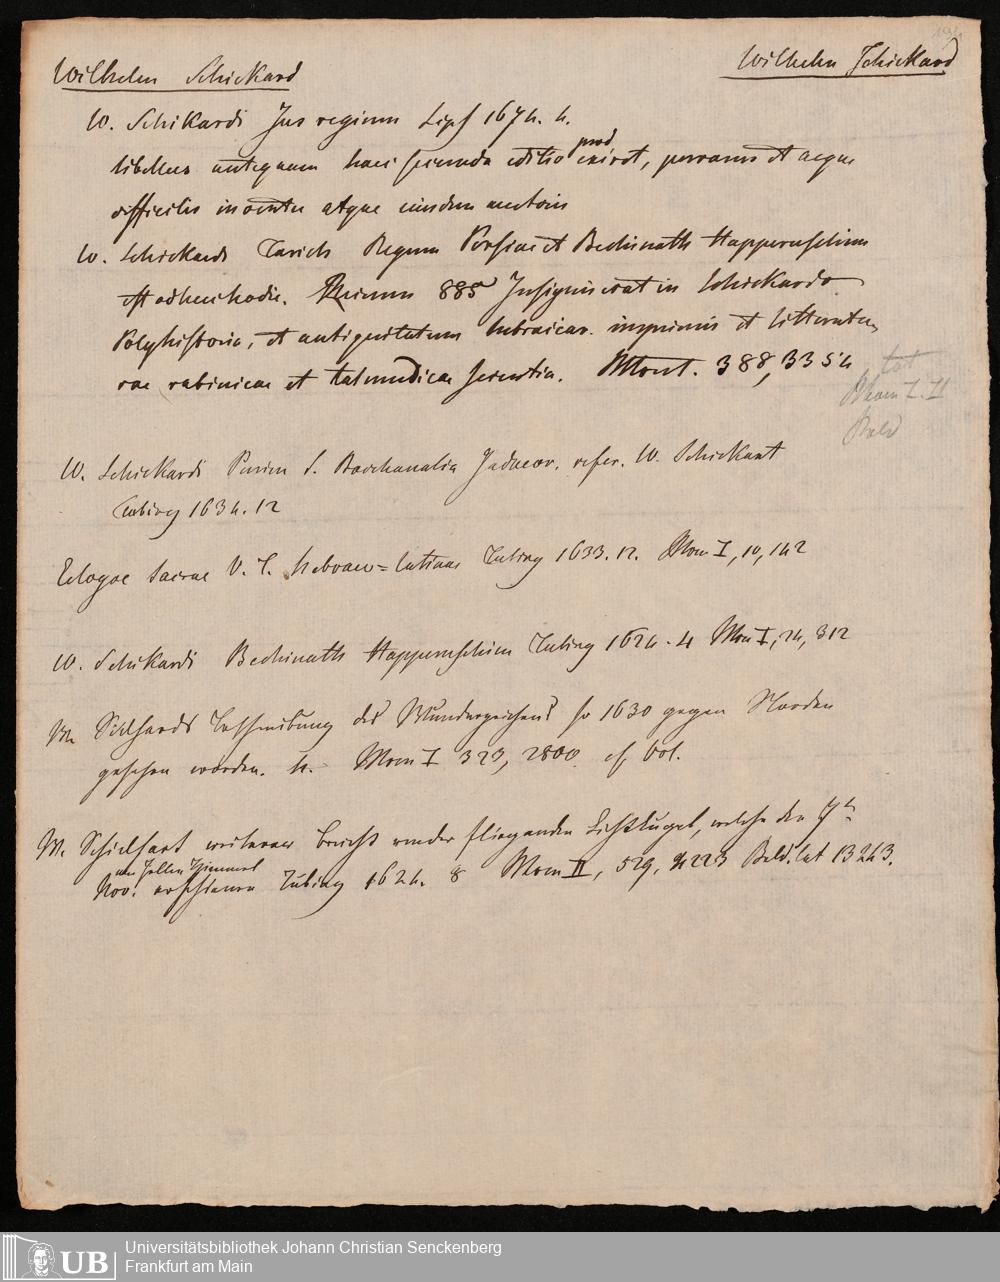 Wilhelm Schickard
Wilhelm Schickard
W. Schikardi Jus regium Lips 1674. 4.
libellus antequam haec secunda editio prod
exiret, perrarus et aeque
difficilis inventu atque eiusdem auctoris
W. Schickardi Tarich Regum Persiae et Bechinath Happeruschim
est adhuc hodie. 885 Insignis erat in Schickardo
Polyhistoria, et antiquitatum hebraicar. inprimis et litteratu
rae rabinicae et talmudicae scientia. Mont. 388, 3354
W. Schickardi Purim s. Bacchanalia Judaeor. refer. W. Schickart
Tubing 1634. 12
Eclogae sacrae V. T. hebraeo=latinae Tubing 1633. 12. Mon I, 10, 142
W. Schikardi Bechinath Happeruschim Tubing 1624. 4 Mon I, 24, 312
M Schikards Beschreibung des Wunderzeichens so 1630 gegen Norden
gesehen worden. 4. Mon I 323, 2800. cf Vol.
M. Schickart weiterer Bericht von der fliegenden Lichtkugel, welche den 7t
am hellen Himmel
Nov. erschienen Tubing 1624. 8 Mon II, 529, 4223 Beld. Cat 13243.
UB
Universitätsbibliothek Johann Christian Senckenberg
Frankfurt am Main